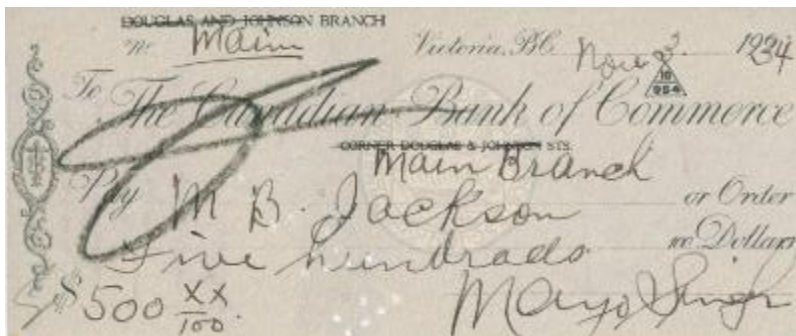 DOUGLAS AND JOHNSON BRANCH
No Main Victoria, B.C. Nov 3. 1934
To The Canadian Bank of Commerce
CORNER DOUGLAS & JOHNSON STS.
Main Branch
Pay M B. Jackson or Order
Five hundrads 100 Dollars
$ 500 XX/100. Mayo Singh